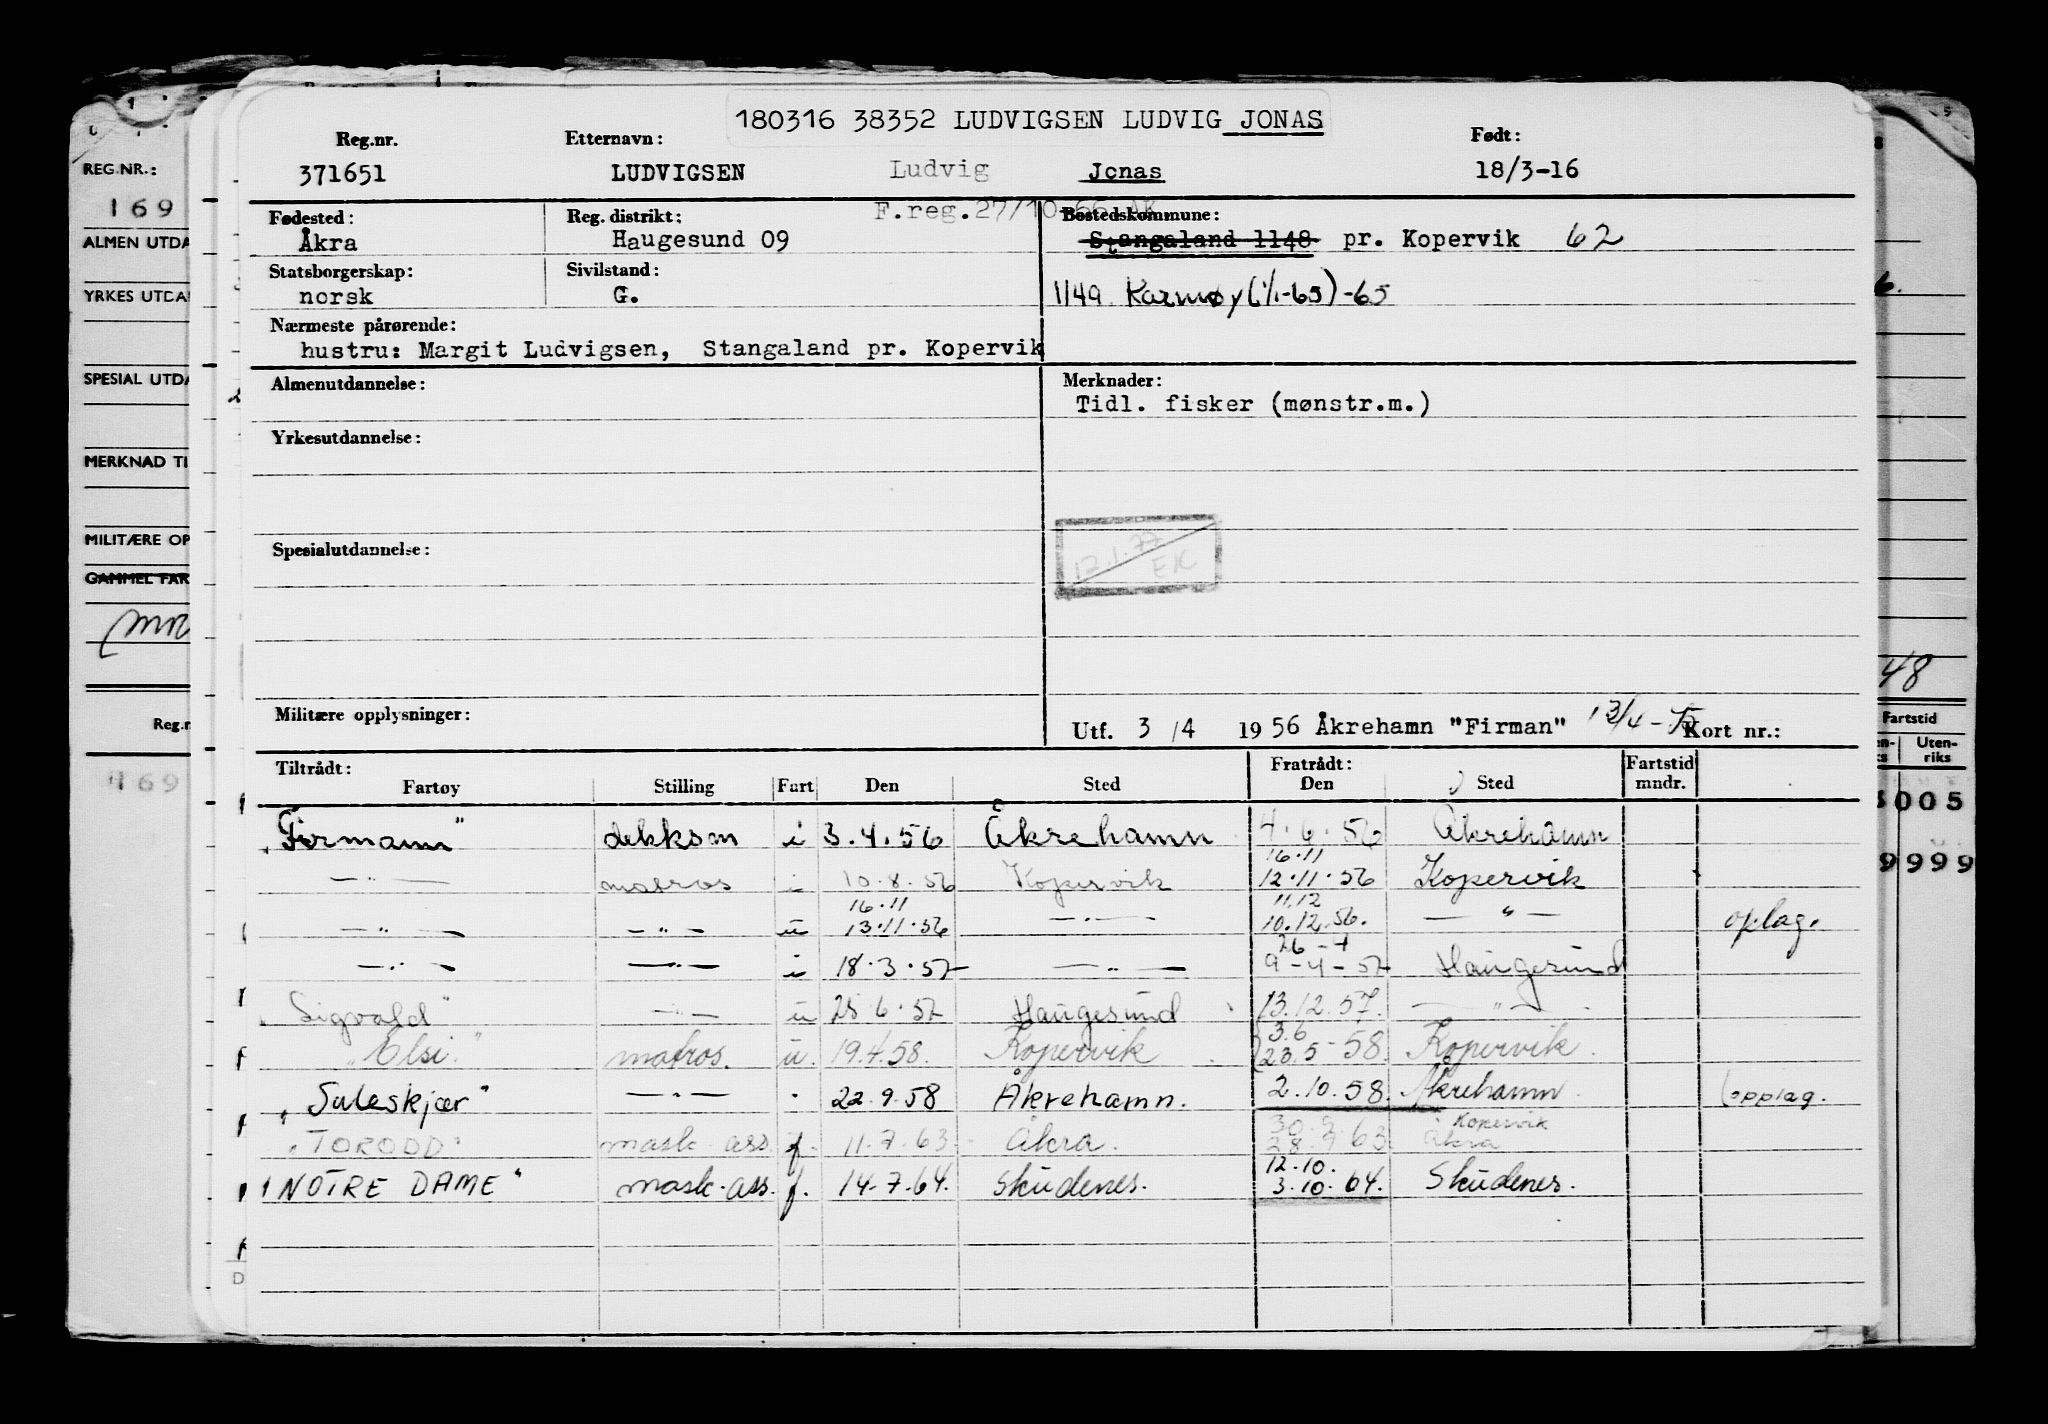 180316 38352 LUDVIGSEN LUDVIG JONAS
Reg.nr. Etternavn: Født:
371651 LUDVIGSEN Ludvig Jonas 18/3-16
F.reg.27/10-66 AK
Fødested: Reg. distrikt: Bostedskommune:
Åkra Haugesund 09 Stangaland 1148 pr. Kopervik 62
Statsborgerskap: Sivilstand:
norsk G. 1149 Karmøy (1/1-65)-65
Nærmeste pårørende:
hustru: Margit Ludvigsen, Stangaland pr. Kopervik
Almenutdannelse: Merknader:
Tidl. fisker (mønstr.m.)
Yrkesutdannelse:
12.1.77
EK
Spesialutdannelse:
Militære opplysninger:
Utf. 3/4 1956 Åkrehamn "Firman" Kort nr.:
Tiltrådt: Fratrådt: Fartstid
Fartøy Stilling Fart Den Sted Den Sted mndr.
"Firmann" dekksm i 3.4.56 Åkrehamn 4.6.56 Åkrehamn
16.11
—"— matros i 10.8.56 Kopervik 12.11.56 Kopervik
16.11 11.12
—"— —"— u 13.11.56 —"— 10.12.56. —"— oplag.
26-4
—"— —"— i 18.3.57 —"— 9-4-57 Haugesund
"Sigvald" —"— u 25.6.57 Haugesund 13.12.57. —"—
3.6
"Elsi." matros. u. 19.4.58. Kopervik 23.5-58. Kopervik.
"Suleskjær" —"— . 22.9.58 Åkrehamn. 2.10.58. Åkrehamn. (opplag.
30.9 Kopervik
"TORODD" mask. ass f. 11.7.63. Åkra. 28.9.63 Åkra
12.10.
"NOTRE DAME" mask. ass. f. 14.7.64. Skudenes. 3.10.64. Skudenes.
REG.NR.:
169
ALMEN UTDA
YRKES UTDA
SPESIAL UTDA
MERKNAD TI
MILITÆRE OP
GAMMEL FAR
Reg.n
169
6.
48
Fartstid
Uten-
riks
005
9999